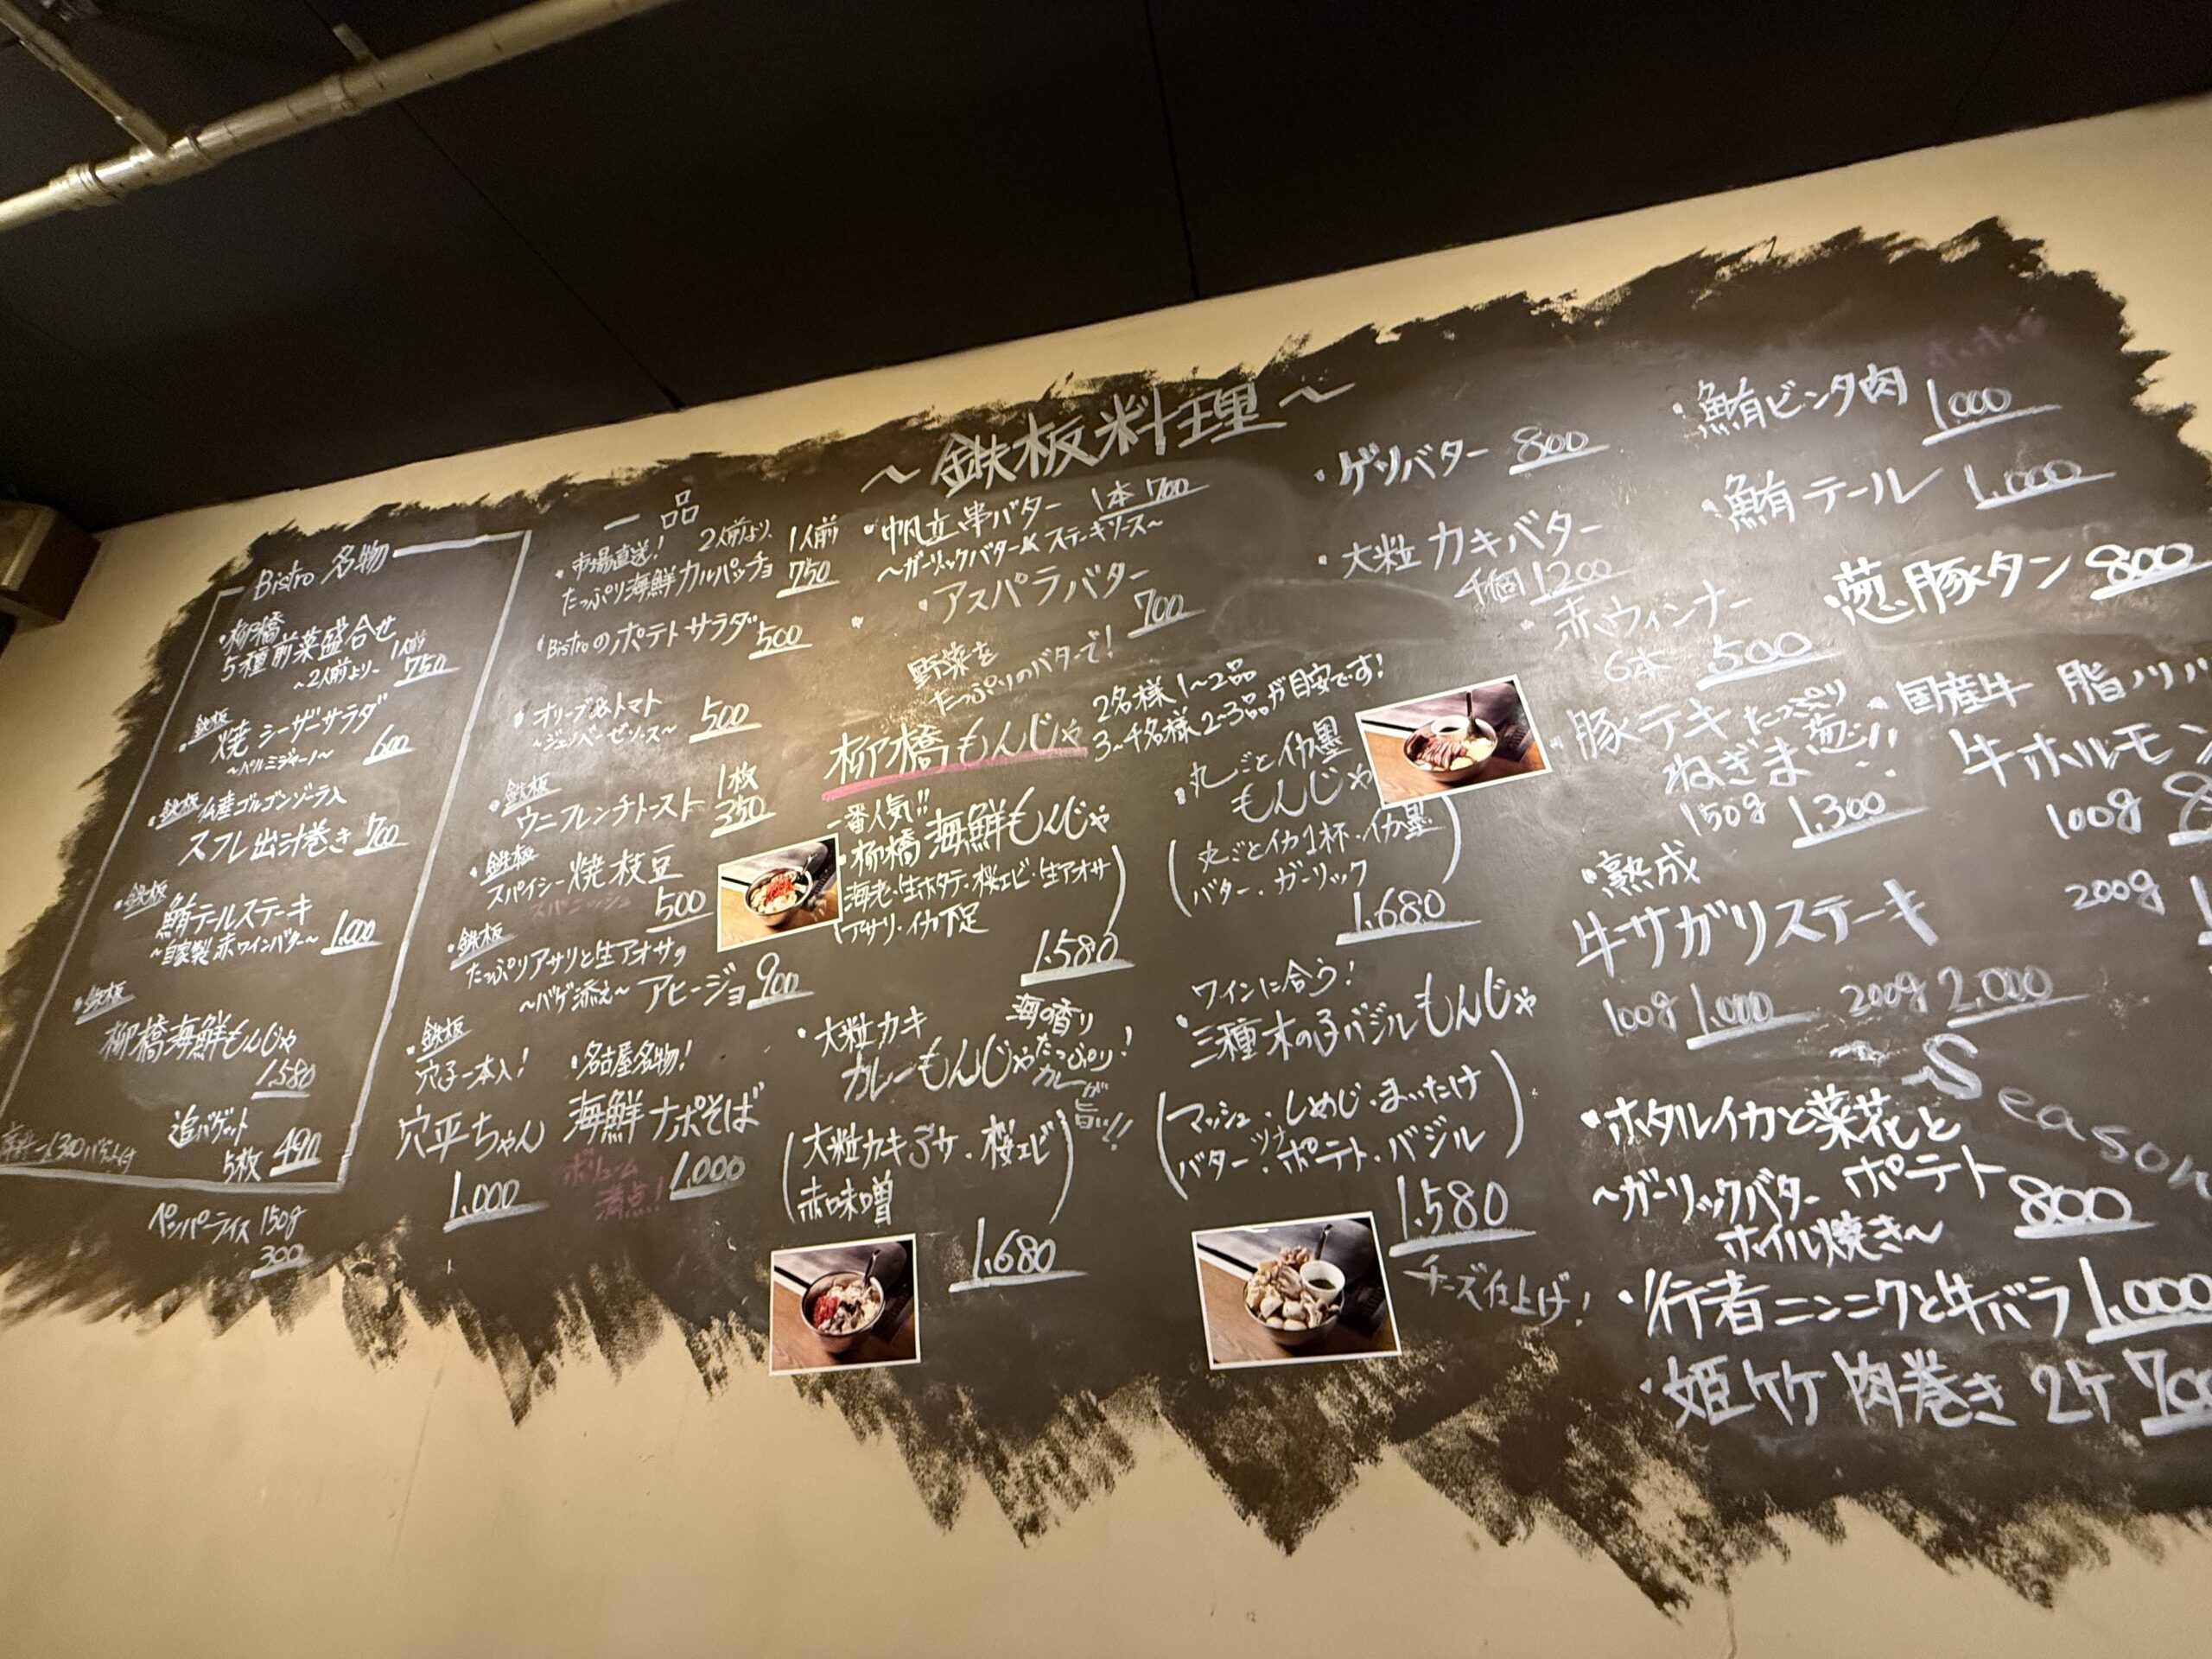 Bistro 名物
・柳橋
5種前菜盛合せ
~2人前より~ 1人前
750
・鉄板
焼シーザーサラダ
~パルミジャーノ~ 600
・鉄板 仏産ゴルゴンゾーラ入
スフレ出汁巻き 700
・鉄板
鮪テールステーキ
~自家製赤ワインバター~ 1,000
・鉄板
柳橋海鮮もんじゃ
1,580
追バゲット
5枚 490
ペッパーライス 150g
300
一品
・市場直送! 2人前より、1人前
たっぷり海鮮カルパッチョ 750
・Bistroのポテトサラダ 500
・オリーブ&トマト
~ジェノベーゼソース~ 500
・鉄板
ウニフレンチトースト 1枚
350
・鉄板
スパイシー焼枝豆
スパニッシュ 500
・鉄板
たっぷりアサリと生アオサの
~バゲ添え~ アヒージョ 900
・鉄板
穴子一本入!
穴平ちゃん
1,000
・名古屋名物!
海鮮ナポそば
ボリューム
満点! 1,000
~鉄板料理~
・帆立串バター 1本 700
~ガーリックバター&ステーキソース~
・アスパラバター
700
野菜を
たっぷりのバターで!
柳橋もんじゃ
2名様1~2品
3~4名様2~3品が目安です!
一番人気!!
・柳橋海鮮もんじゃ
(海老・生ホタテ・桜エビ・生アオサ
アサリ・イカ下足)
1,580
・大粒カキ
カレーもんじゃ
海の香り
たっぷり!
カレーが
旨い!!
(大粒カキ・アサ・桜エビ
赤味噌)
1,680
・丸ごとイカ墨
もんじゃ
(丸ごとイカ1杯・イカ墨
バター・ガーリック)
1,680
ワインに合う!
・三種木の子バジルもんじゃ
(マッシュ・しめじ・まいたけ
バター・ツナ・ポテト・バジル)
1,580
チーズ仕上げ!
・ゲソバター 800
・大粒カキバター
4個 1200
・赤ウィンナー
6本 500
・豚テキ たっぷり
ねぎま 葱!!
150g 1,300
・熟成
牛サガリステーキ
100g 1,000 200g 2,000
・鮪ビンタ肉 1,000
・鮪テール 1,000
・葱豚タン 800
・国産牛 脂ノリ
牛ホルモン
100g
200g
Season
・ホタルイカと菜花と
~ガーリックバター ポテト
ホイル焼き~ 800
・行者ニンニクと牛バラ 1,000
・姫竹肉巻き 2ケ 700